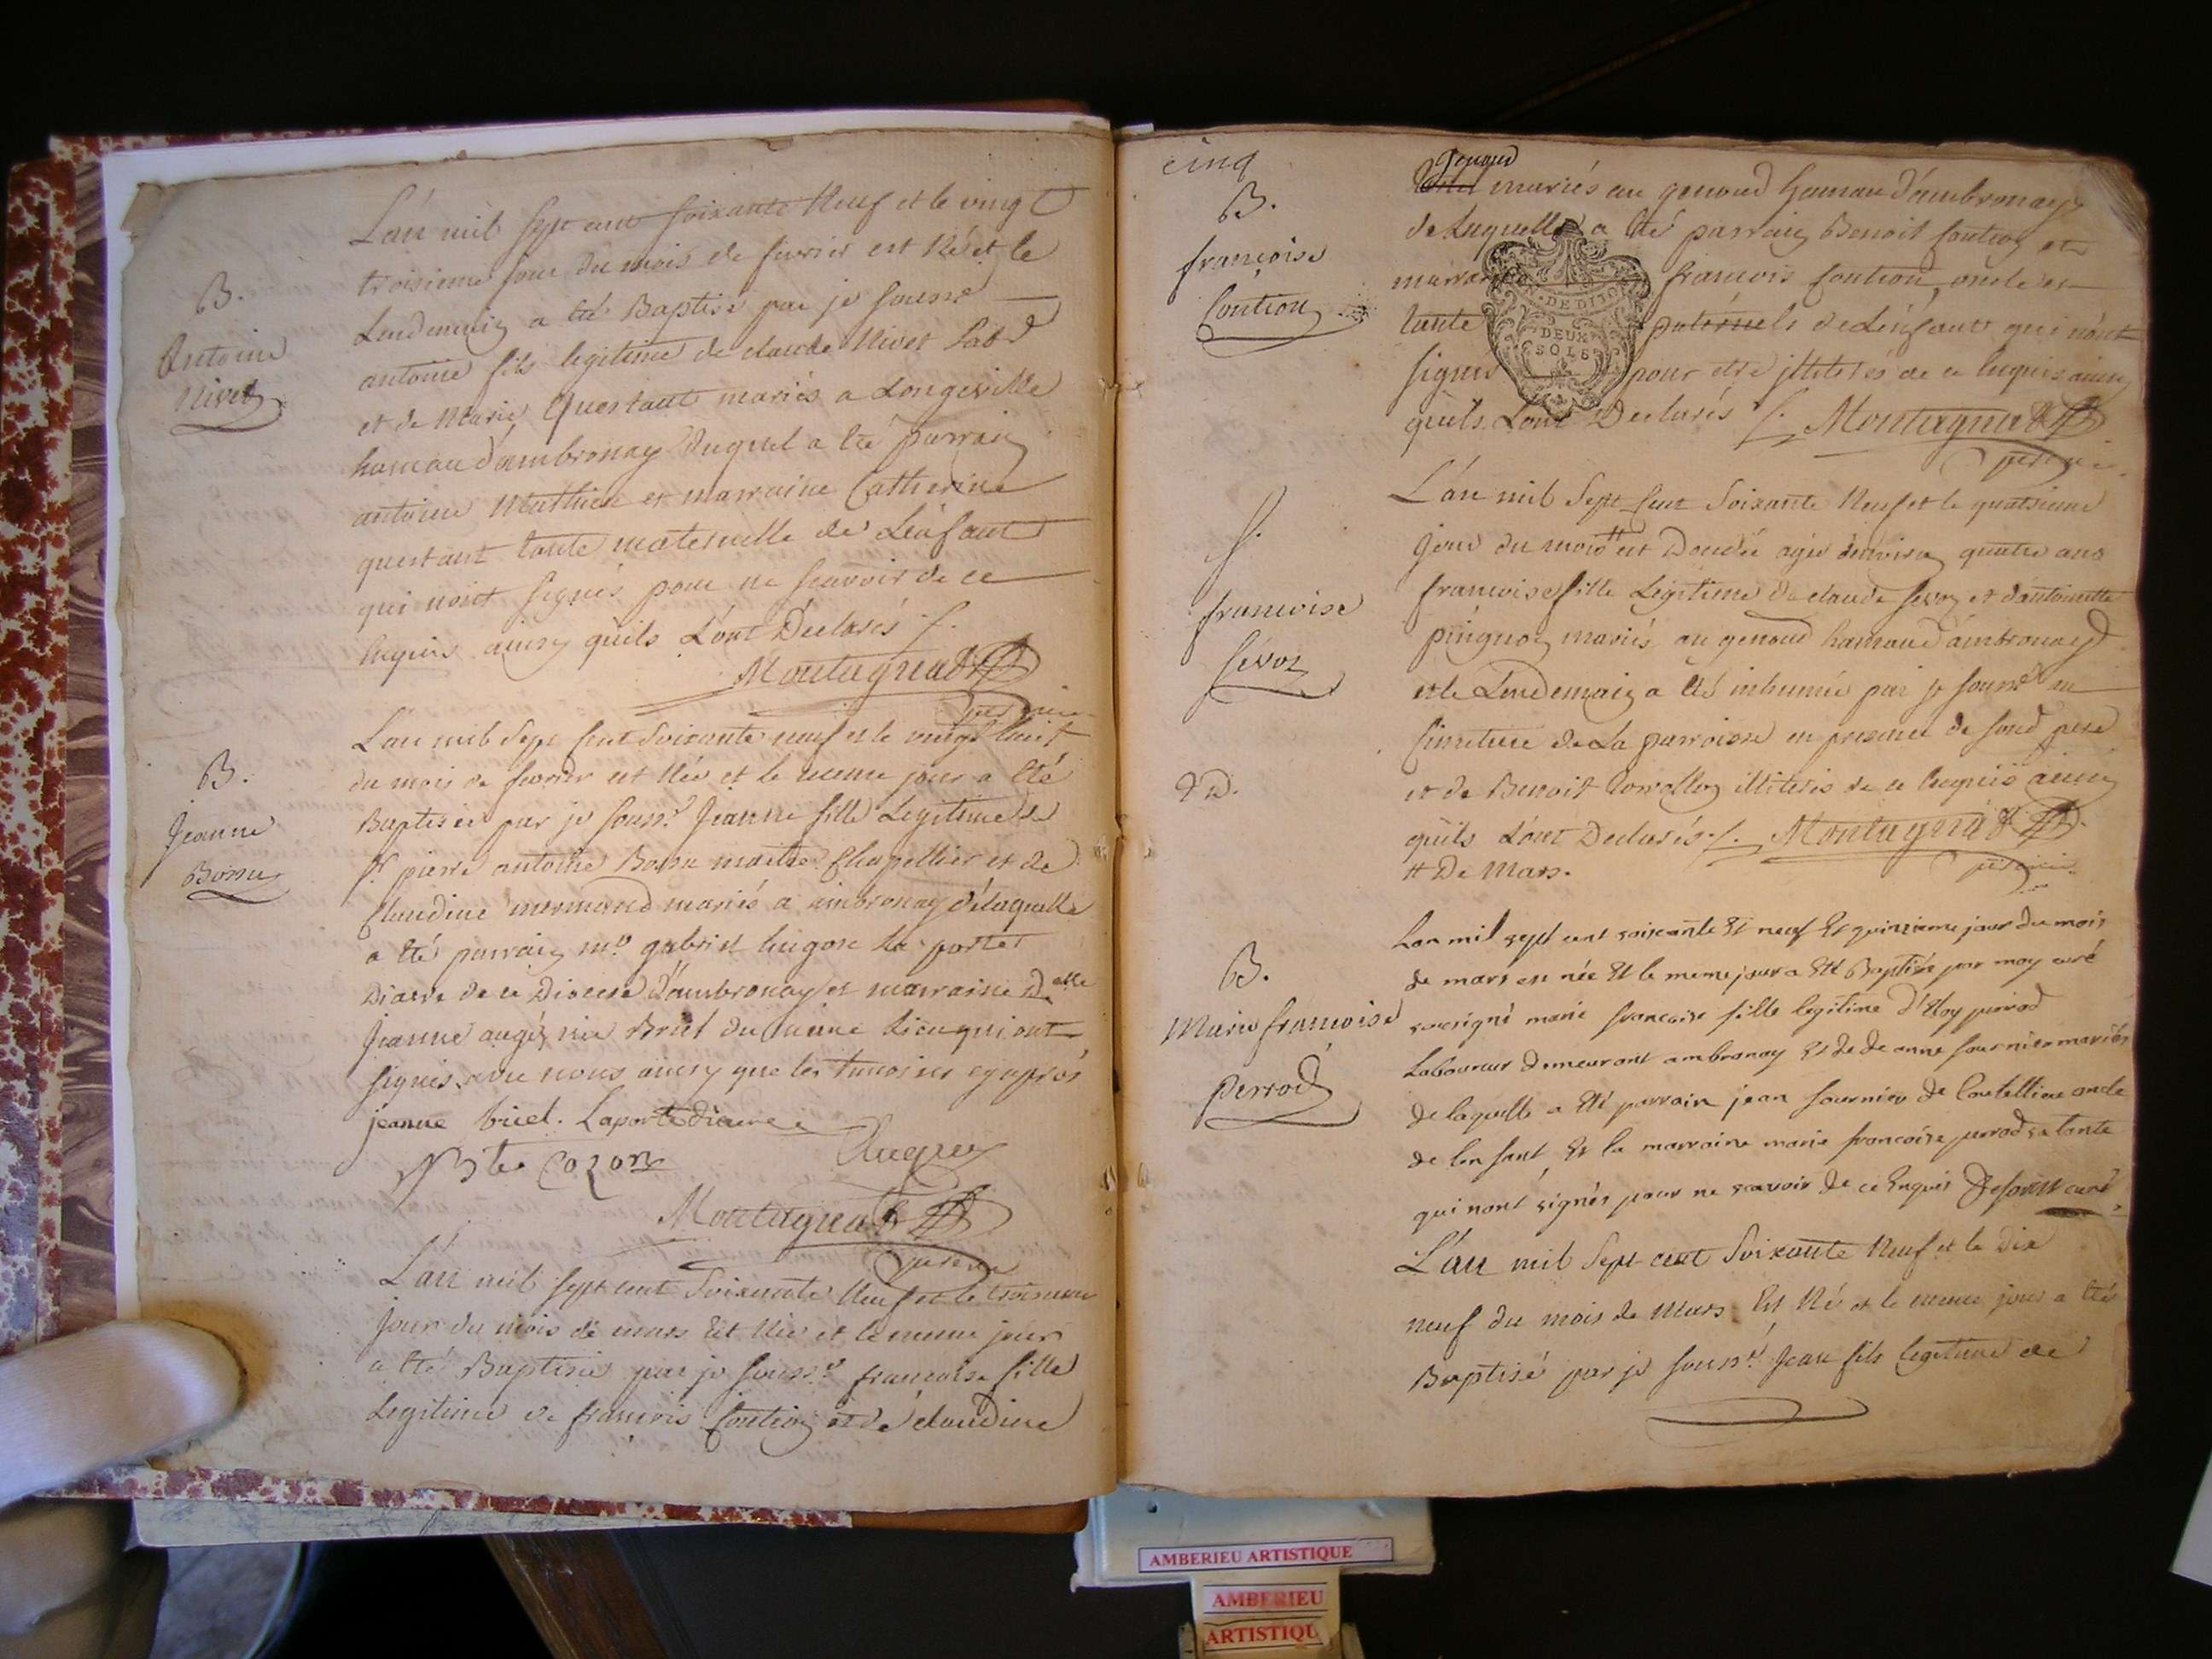 L'an mil sept cent soixante Neuf et le vingt
troisieme jour du mois de fevrier est Né et le
Lendemain a été Baptisé par je soussé
antoine fils legitime de claude Nivet Labr
et de Marie Questant mariés a Longeville
hameau d'ambronay duquel a été parrain
antoine Mathieu et marraine Catherine
questant tante maternelle de L'enfant
qui n'ont signés pour ne scavoir de ce
Enquis ainsy quils L'ont Declarés /.
Montagnat
B.
Antoine
Nivet
L'an mil sept cent soixante neuf et le vingt huit
du mois de fevrier est Née et le meme jour a été
Baptisée par je souss.é Jeanne fille Legitime de
Sr pierre antoine Bossu maitre Chapellier et de
Claudine mermand mariés a ambronay de laquelle
a été parrain mre gabriel La porte
Diacre de ce Diocese d'ambronay et marraine Delle
Jeanne augés née Briet du meme Lieu qui ont
signés avec nous ainsy que les temoins cy apres
B.
Jeanne
Bossu
jeanne briel. Laporte diacre
Bte Cozon
Montagnat
L'an mil sept cent Soixante Neuf et le troisieme
Jour du mois de mars Est Née et le meme jour
a été Baptisée par je souss.é francoise fille
Legitime de francois Coution et de claudine
cinq
B.
françoise
Coution
genoud
mariés au genoud hamau d'ambronay
de Laquelle a été parrain Benoit Coution et
marraine francois Coution oncle et
tante paternels de L'enfant qui n'ont
signés pour etre illiterés de ce Enquis ainsy
quils L'ont Declarés /. Montagnat
DE DIJON
DEUX
SOLS
f.
francoise
sevoz
L'an mil Sept Cent Soixante Neuf et le quatrieme
Jour du mois # est Décédée agée denviron quatre ans
francoise fille Legitime de claude sevoz et d'antoinette
pinguoz mariés au genoud hamaud d'ambronay
et le Lendemain a été inhumée par je soussé au
Cimetiere de La parroisse en presence de sond pere
et de Benoit illiterés de ce Enquis ainsy
quils L'ont Declarés /. Montagnat
# De Mars.
B.
Marie francoise
perrod
Lan mil sept cent soixante Et neuf Et quinzieme jour du mois
de mars est née Et le meme jour a Eté Baptisée par moy curé
soussigné marie francoise fille legitime d'Eloy perrod
Laboureur demeurant ambronay Et de de anne fournier mariés
de laquelle a Eté parrain jean fournier de Coutelliere oncle
de lenfant Et la marraine marie francoise perrod sa tante
qui nont signés pour ne scavoir de ce Enquis curé
L'an mil Sept cent Soixante Neuf et le Dix
neuf du mois de Mars Est Né et le meme jour a été
Baptisé par je souss.é Jean fils legitime de
AMBERIEU ARTISTIQUE
AMBERIEU
ARTISTIQU